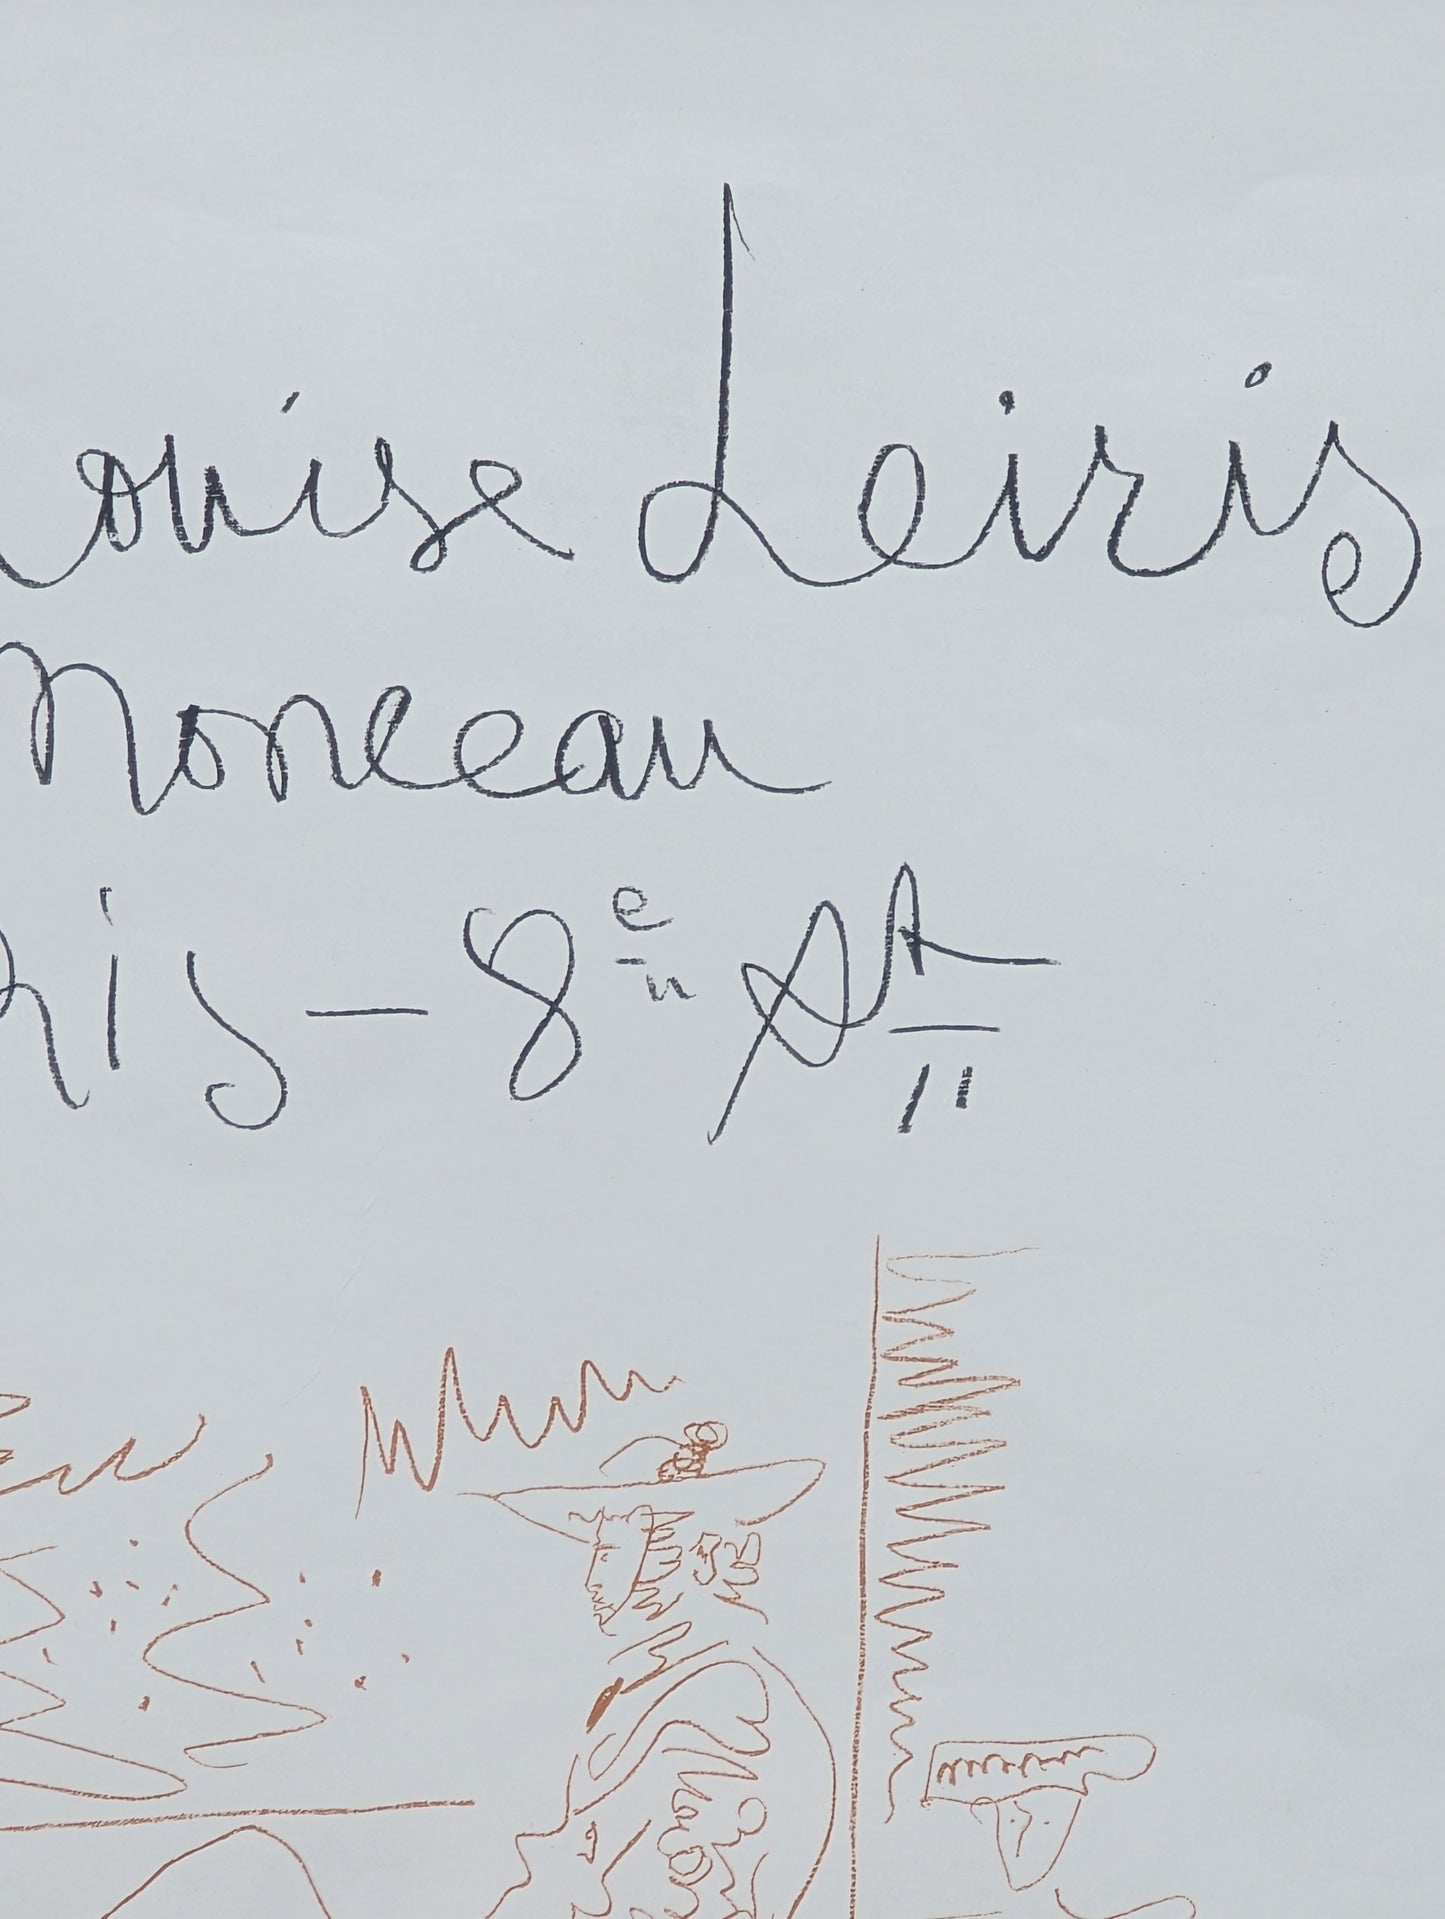 ouise Leiris
Monceau
ris - 8e Art